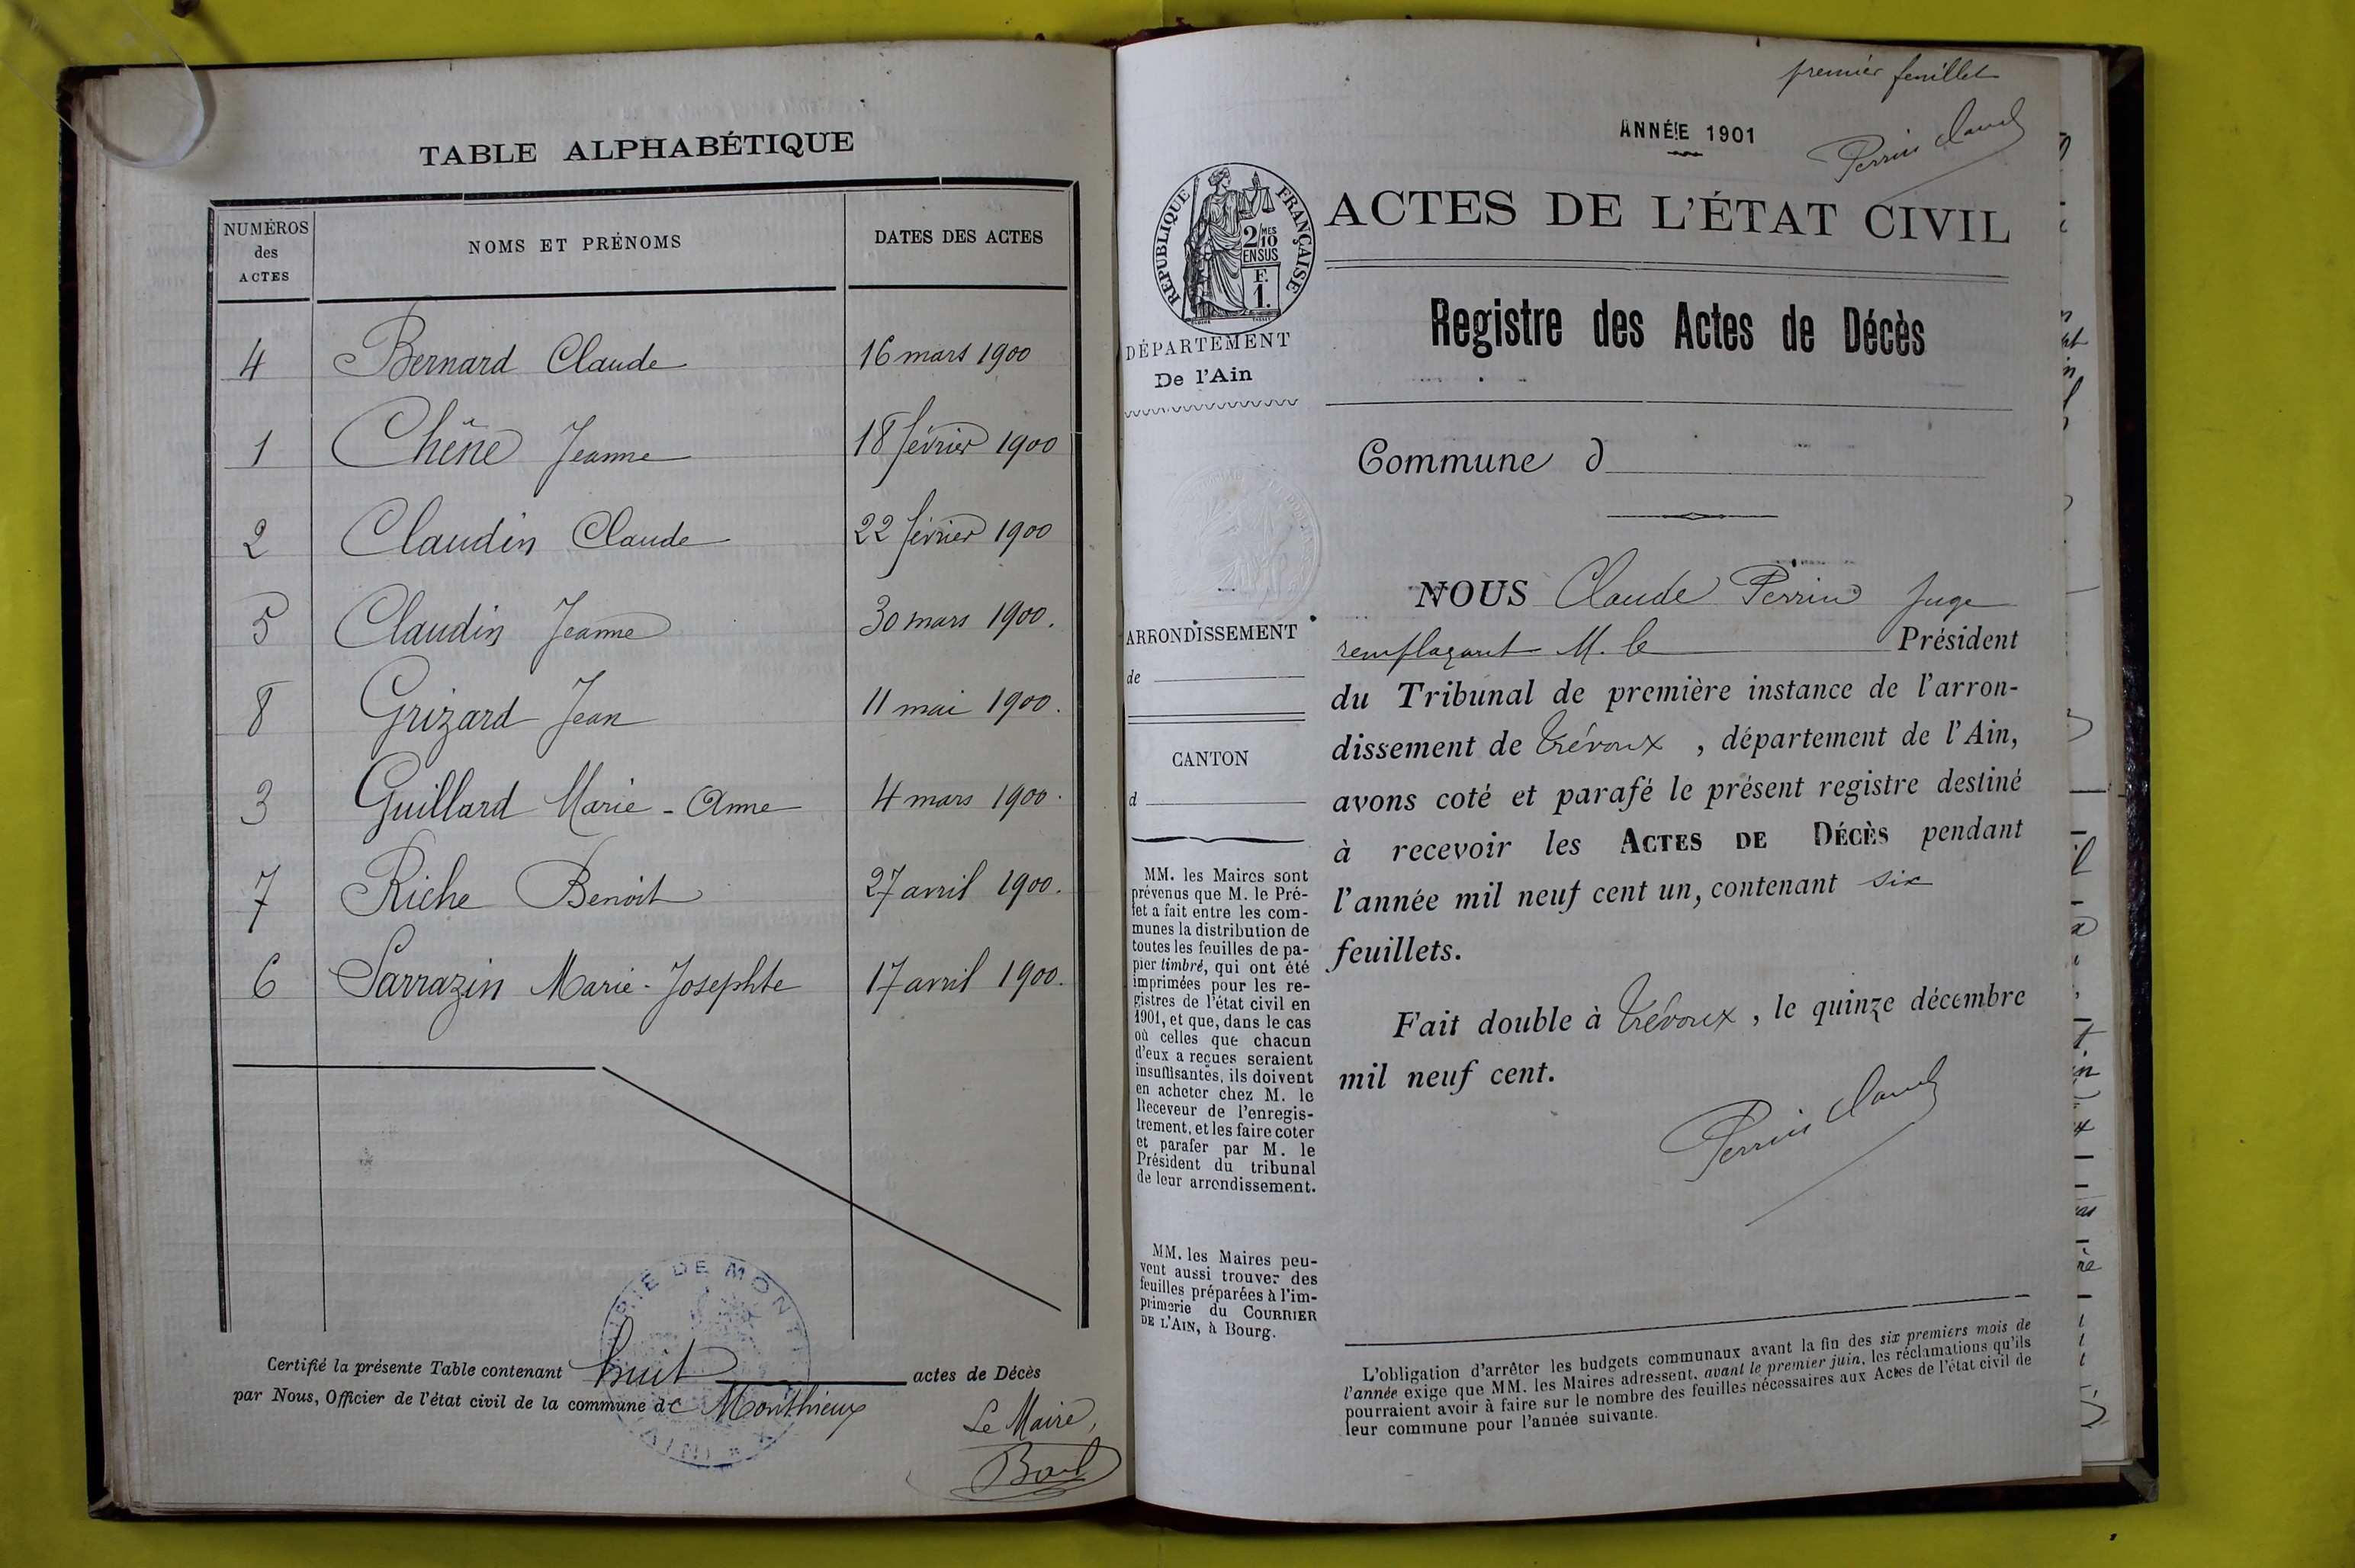 TABLE ALPHABÉTIQUE
NUMÉROS
des
ACTES
NOMS ET PRÉNOMS
DATES DES ACTES
4 Bernard Claude 16 mars 1900
1 Chêne Jeanne 18 février 1900
2 Claudin Claude 22 février 1900
5 Claudin Jeanne 30 mars 1900.
8 Grizard Jean 11 mai 1900.
3 Guillard Marie-Anne 4 mars 1900.
7 Riche Benoit 27 avril 1900.
6 Sarrazin Marie-Josephte 17 avril 1900.
MAIRIE DE MONTHIEUX
(AIN)
Certifié la présente Table contenant huit actes de Décès
par Nous, Officier de l'état civil de la commune de Monthieux
Le Maire,
premier feuillet
Perrin Claude
ANNÉE 1901
RÉPUBLIQUE FRANÇAISE
2/10MES
EN SUS
F.
1.
ACTES DE L'ÉTAT CIVIL
Registre des Actes de Décès
DÉPARTEMENT
De l'Ain
Commune d
ARRONDISSEMENT
de
CANTON
d
MM. les Maires sont
prévenus que M. le Pré-
fet a fait entre les com-
munes la distribution de
toutes les feuilles de pa-
pier timbré, qui ont été
imprimées pour les re-
gistres de l'état civil en
1901, et que, dans le cas
où celles que chacun
d'eux a reçues seraient
insuffisantes, ils doivent
en acheter chez M. le
Receveur de l'enregis-
trement, et les faire coter
et parafer par M. le
Président du tribunal
de leur arrondissement.
MM. les Maires peu-
vent aussi trouver des
feuilles préparées à l'im-
primerie du COURRIER
DE L'AIN, à Bourg.
NOUS Claude Perrin Juge
remplaçant M. le Président
du Tribunal de première instance de l'arron-
dissement de Trévoux, département de l'Ain,
avons coté et parafé le présent registre destiné
à recevoir les ACTES DE DÉCÈS pendant
l'année mil neuf cent un, contenant six
feuillets.
Fait double à Trévoux, le quinze décembre
mil neuf cent.
Perrin Claude
L'obligation d'arrêter les budgets communaux avant la fin des six premiers mois de
l'année exige que MM. les Maires adressent, avant le premier juin, les réclamations qu'ils
pourraient avoir à faire sur le nombre des feuilles nécessaires aux Actes de l'état civil de
leur commune pour l'année suivante.